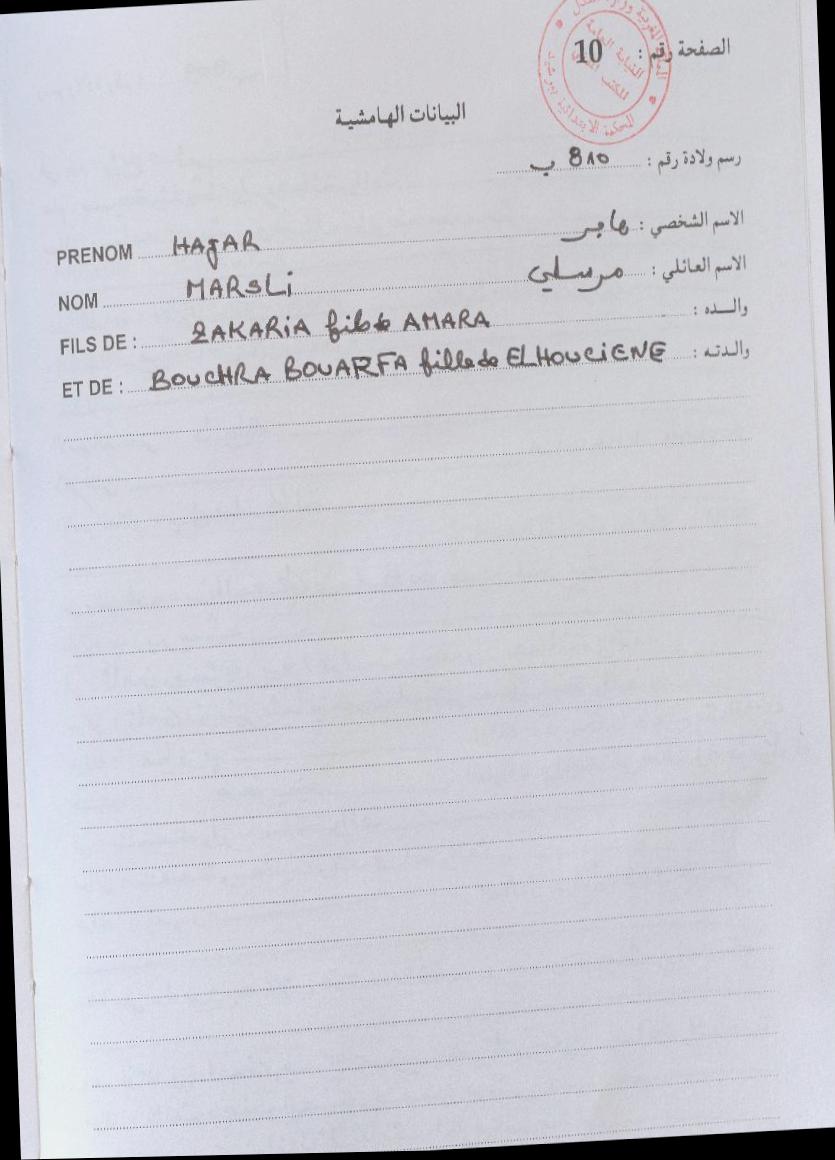 الصفحة رقم : 10
البيانات الهامشية
رسم ولادة رقم : 810 ب
الاسم الشخصي : هاجر
PRENOM HAJAR
الاسم العائلي : مرسلي
NOM MARSLi
والـــده :
FILS DE : ZAKARiA fils de AMARA
والدتـه :
ET DE : BOUCHRA BOUARFA fille de ELHOUCiENE
المحكمة الابتدائية
النيابة العامة